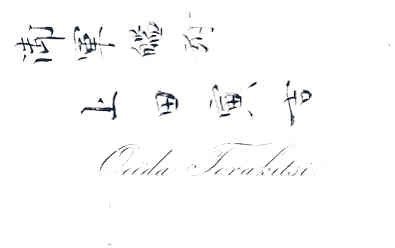 軍艦
上田寅吉
Oeida Torakitsi